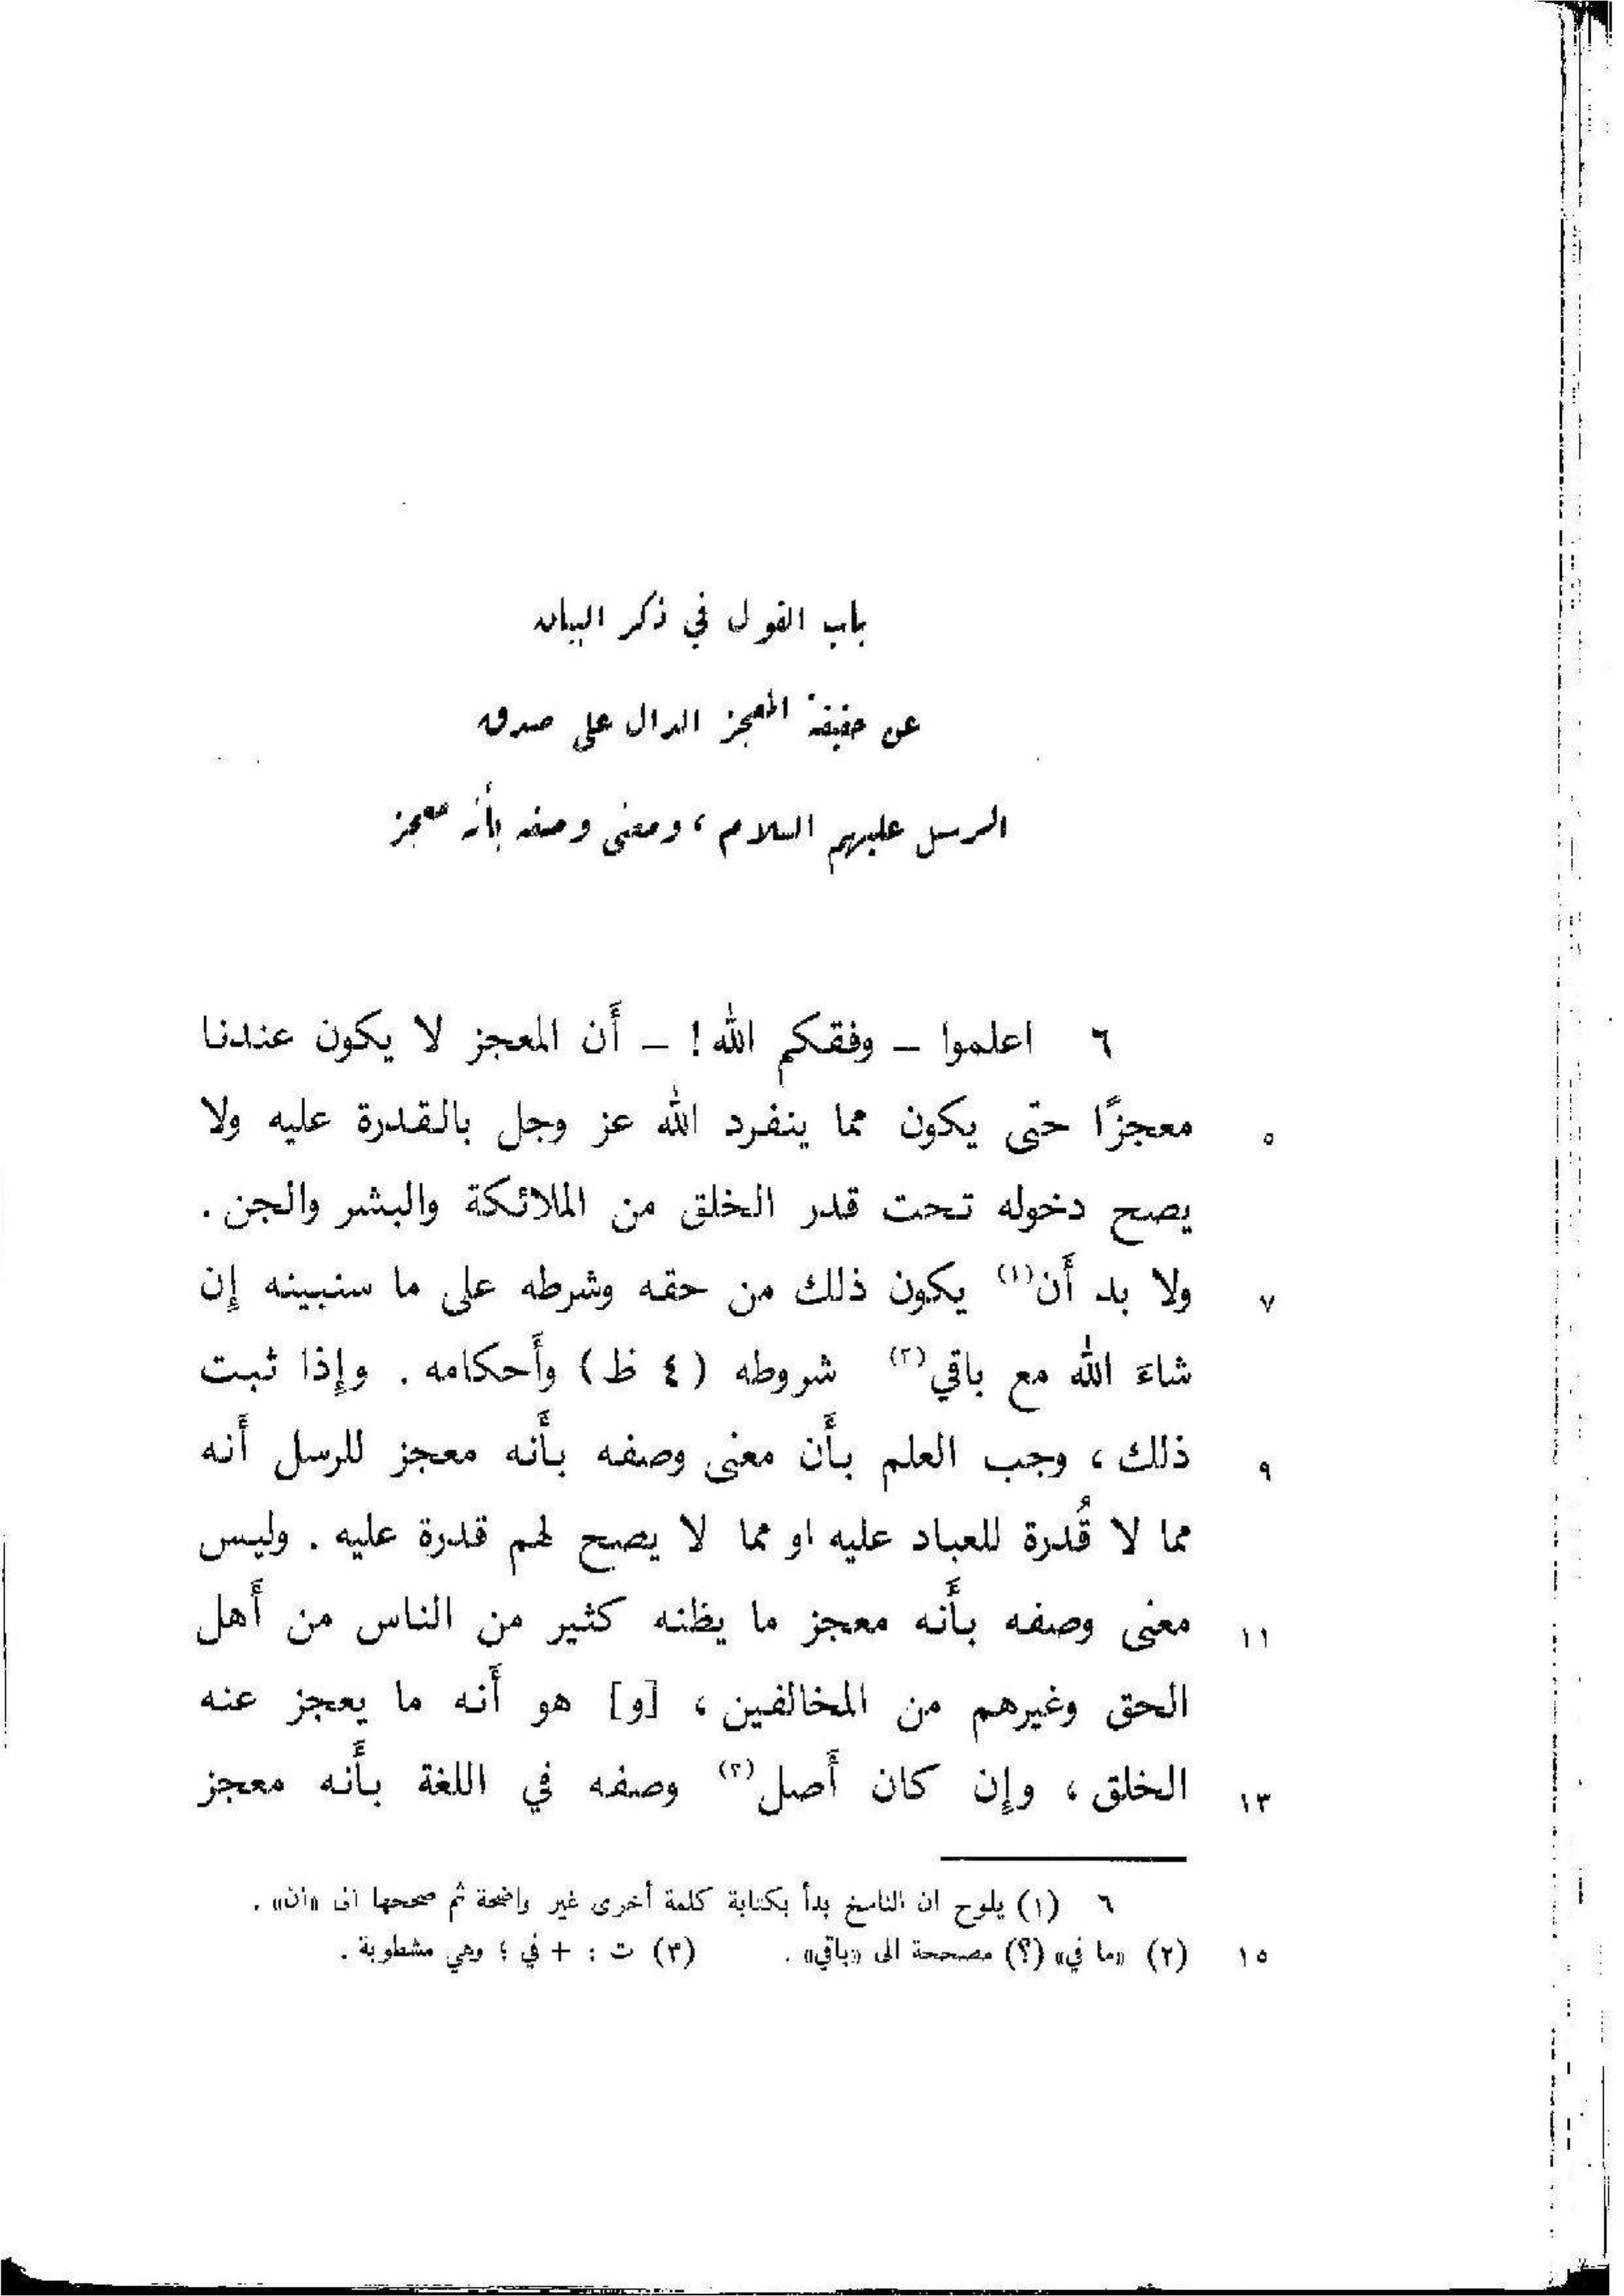 باب القول في ذكر البيان
عن حقيقة المعجز الدال على صدق
الرسل عليهم السلام ، ومعنى وصفه بأنه معجز
٦ اعلموا – وفقكم الله ! – أَن المعجز لا يكون عندنا
٥ معجزًا حتى يكون مما ينفرد الله عز وجل بالقدرة عليه ولا
يصح دخوله تحت قدر الخلق من الملائكة والبشر والجن .
٧ ولا بد أَن(١) يكون ذلك من حقه وشرطه على ما سنبينه إن
شاءَ الله مع باقي(٢) شروطه (٤ ظ) وأَحكامه . وإذا ثبت
٩ ذلك ، وجب العلم بأَن معنى وصفه بأَنه معجز للرسل أَنه
مما لا قُدرة للعباد عليه او مما لا يصح لهم قدرة عليه . وليس
١١ معنى وصفه بأَنه معجز ما يظنه كثير من الناس من أَهل
الحق وغيرهم من المخالفين ، [و] هو أَنه ما يعجز عنه
١٣ الخلق ، وإن كان أَصل(٣) وصفه في اللغة بأَنه معجز
٦ (١) يلوح ان الناسخ بدأ بكتابة كلمة أخرى غير واضحة ثم صححها الى «ان» .
١٥ (٢) «ما في» (؟) مصححة الى «باقي» . (٣) ت : + في ؛ وهي مشطوبة .